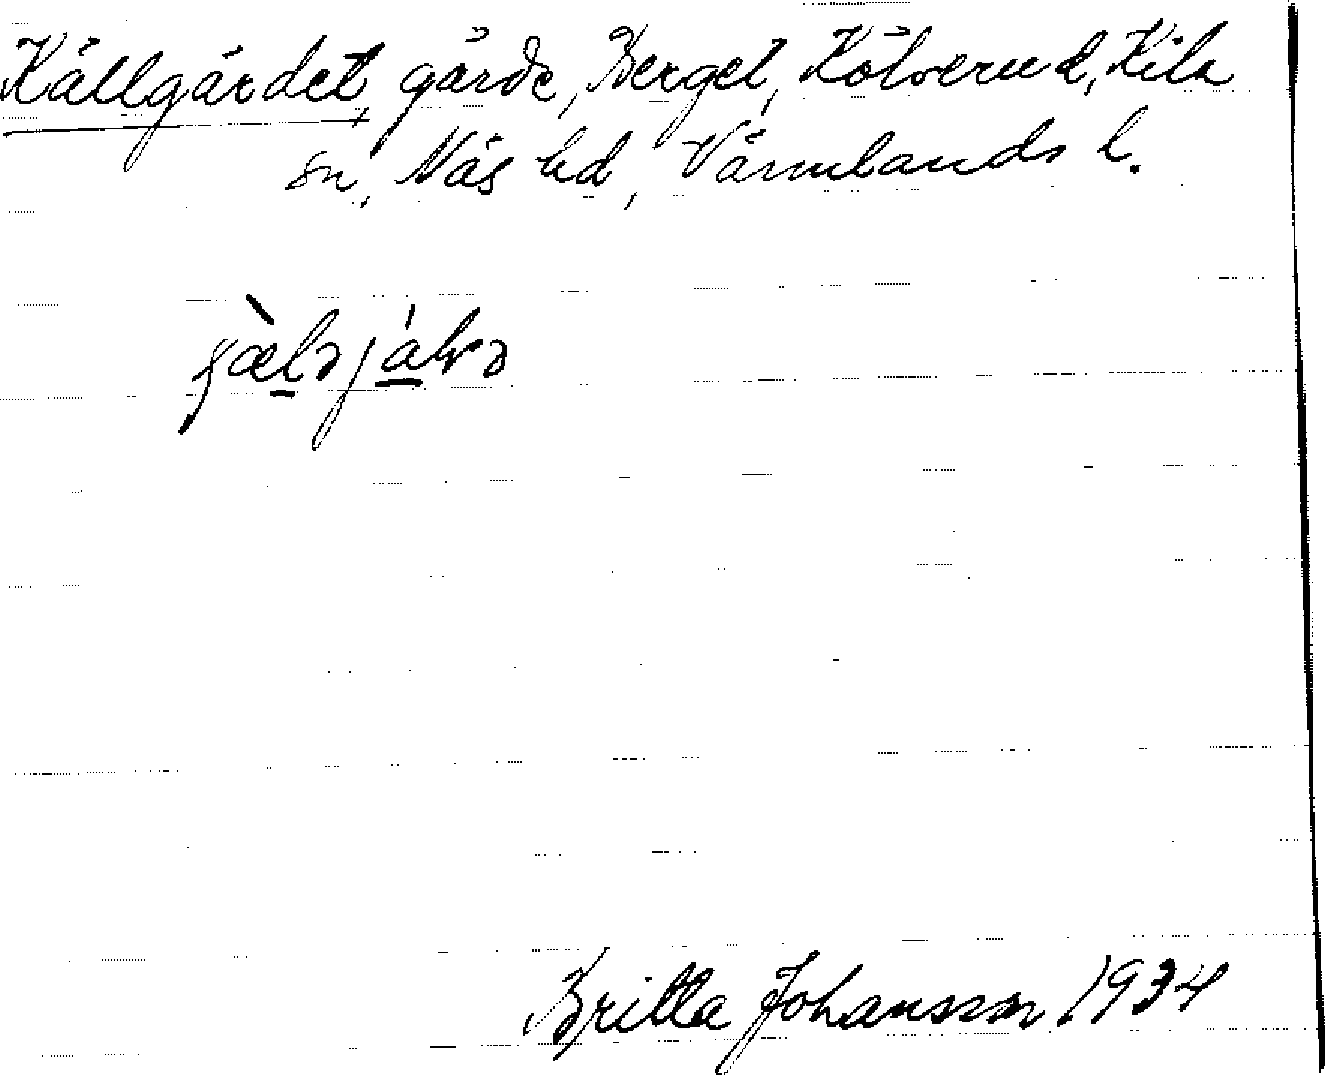 Källgärdet, gärde, Berget, Kölserud, Kila
sn, Näs hd, Värmlands l.
Britta Johansson 1934